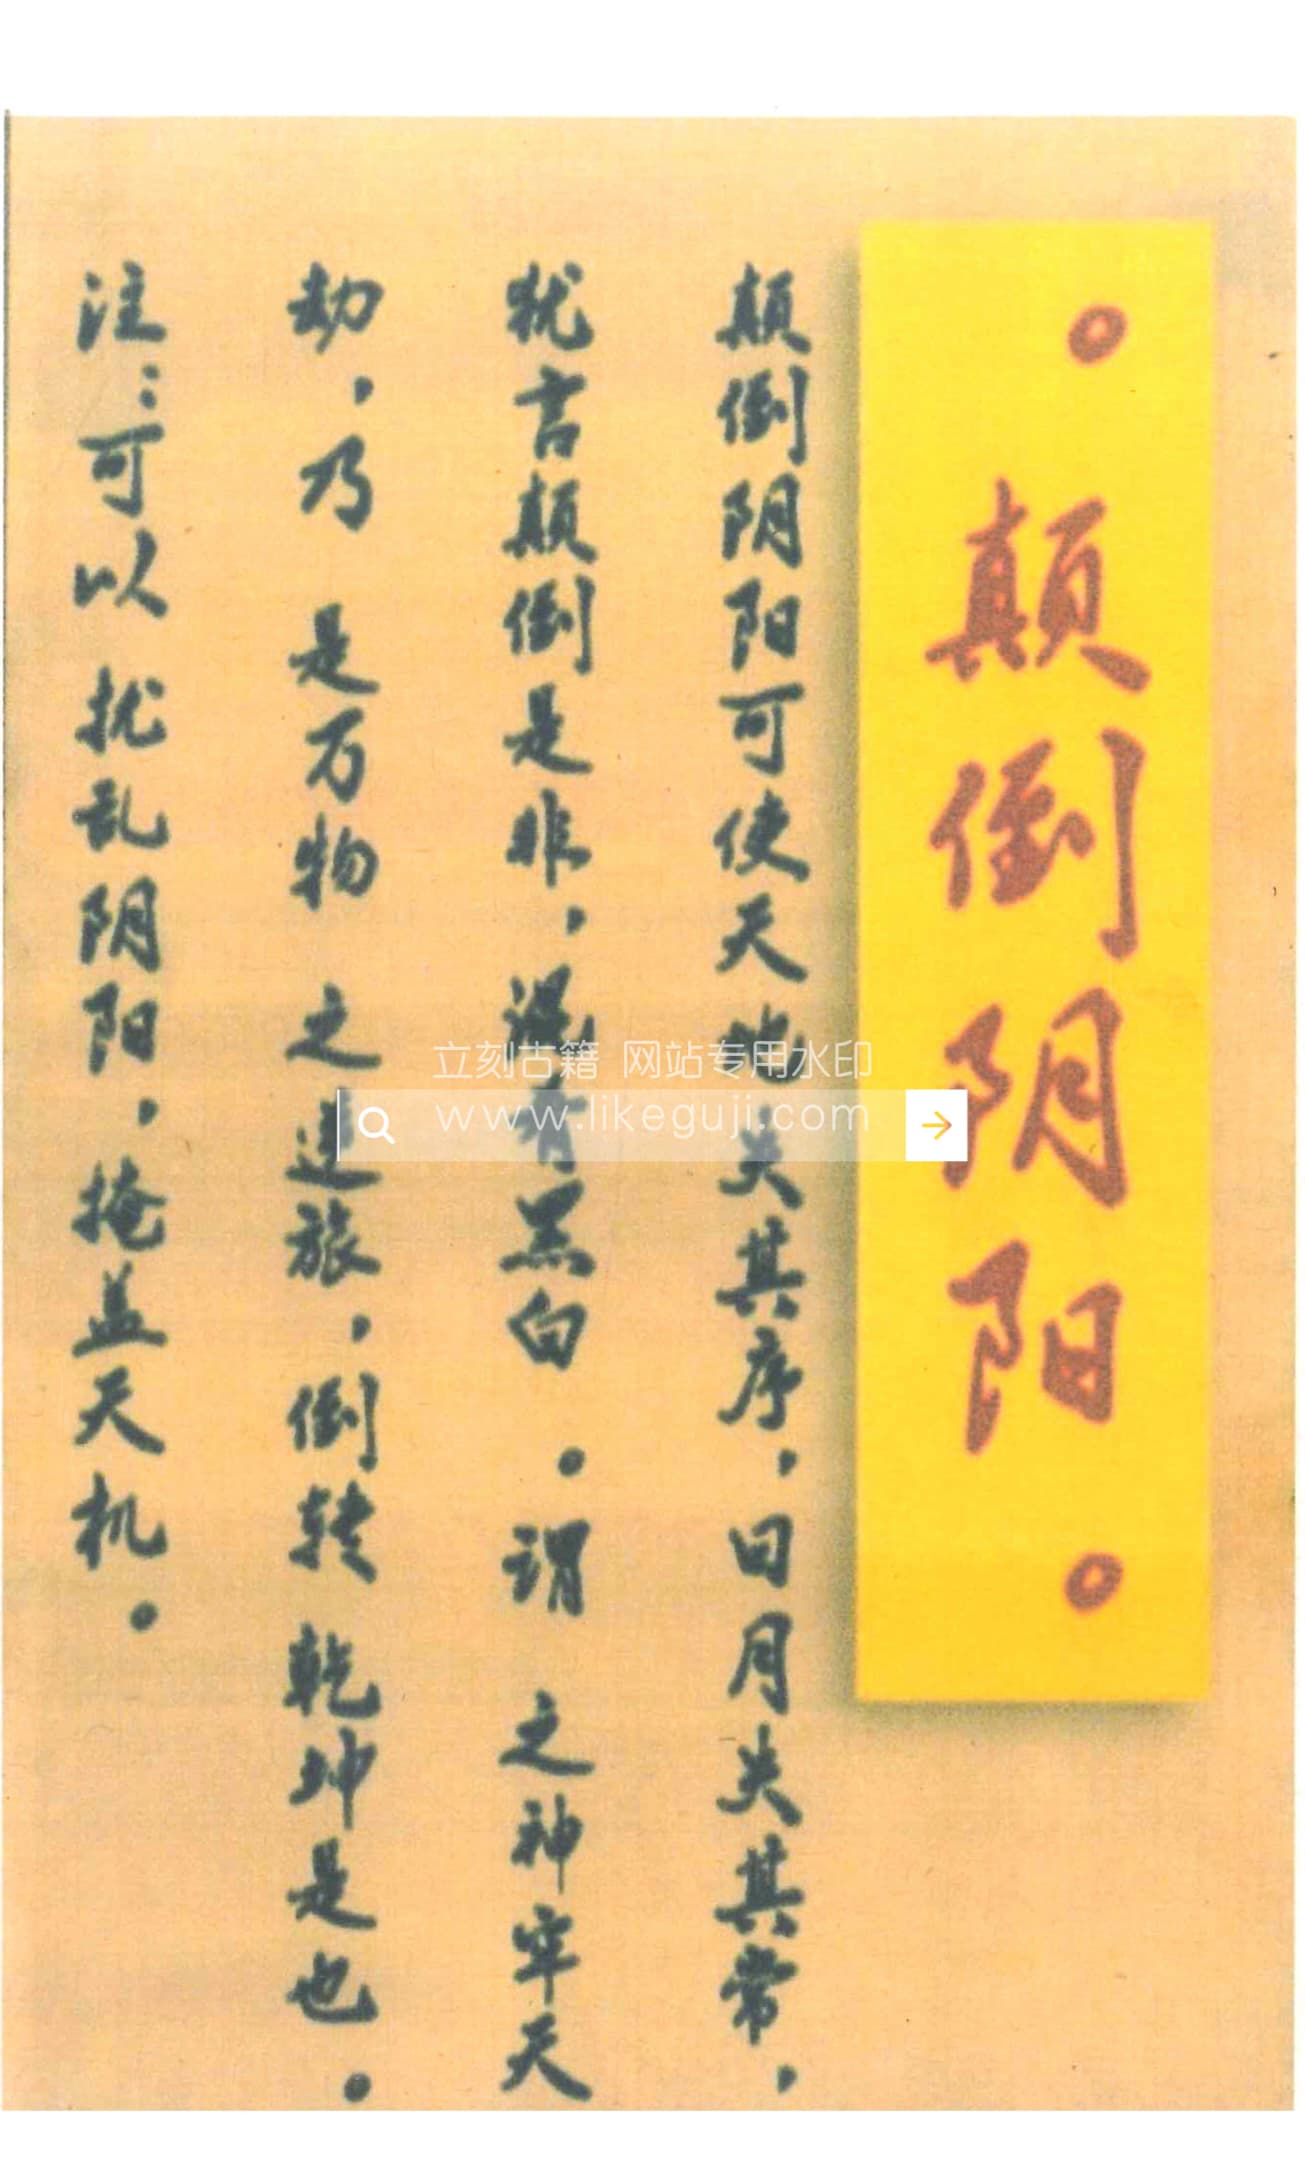 。颠倒阴阳。
颠倒阴阳可使天地失其序，日月失其常，
犹言颠倒是非，混有黑白。谓 之神牢天
劫，乃 是万物 之逆旅，倒转 乾坤是也。
注：可以 扰乱阴阳，掩盖天机。
立刻古籍 网站专用水印
www.likeguji.com